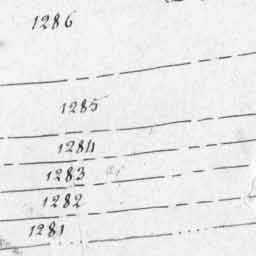 1286
1285
1284
1283
1282
1281